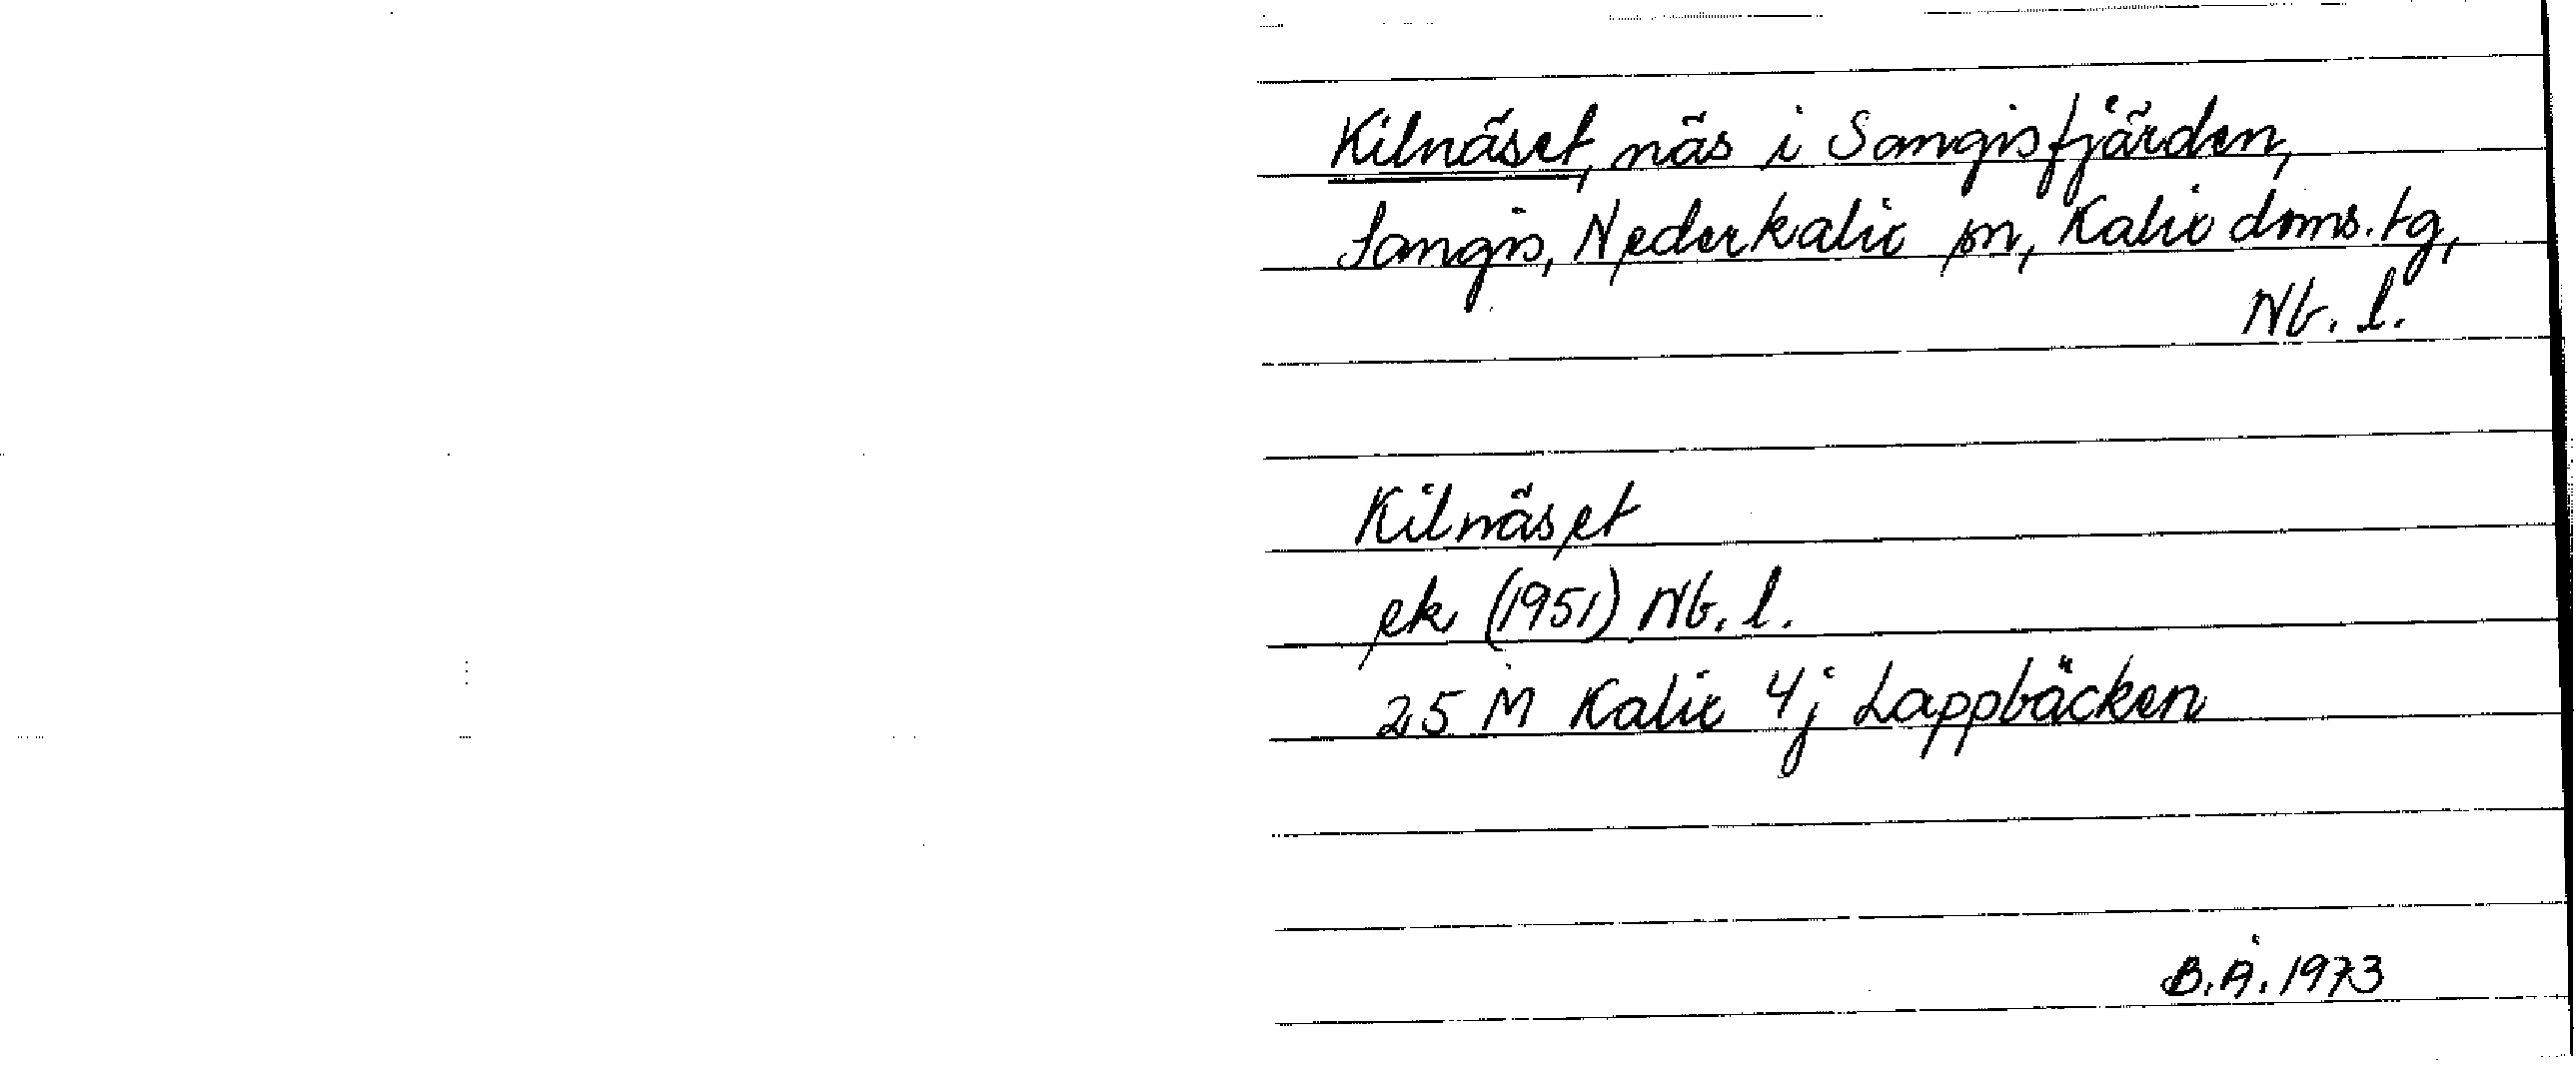 Kilnäset, näs i Sangisfjärden,
Sangis, Nederkalix sn, Kalix doms.tg,
Nb. l.
Kilnäset
ek (1951) Nb. l.
25 M Kalix 4j Lappbäcken
B.Å. 1973